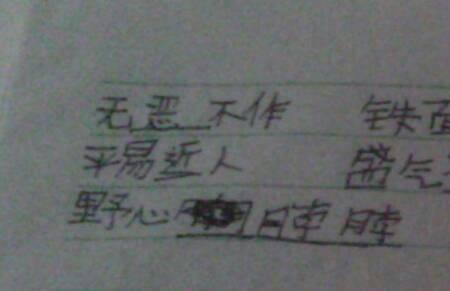 无恶不作 铁面
平易近人 盛气
野心